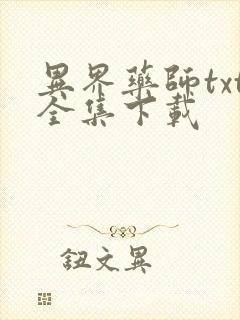 異界藥師txt
全集下載
鈕文異